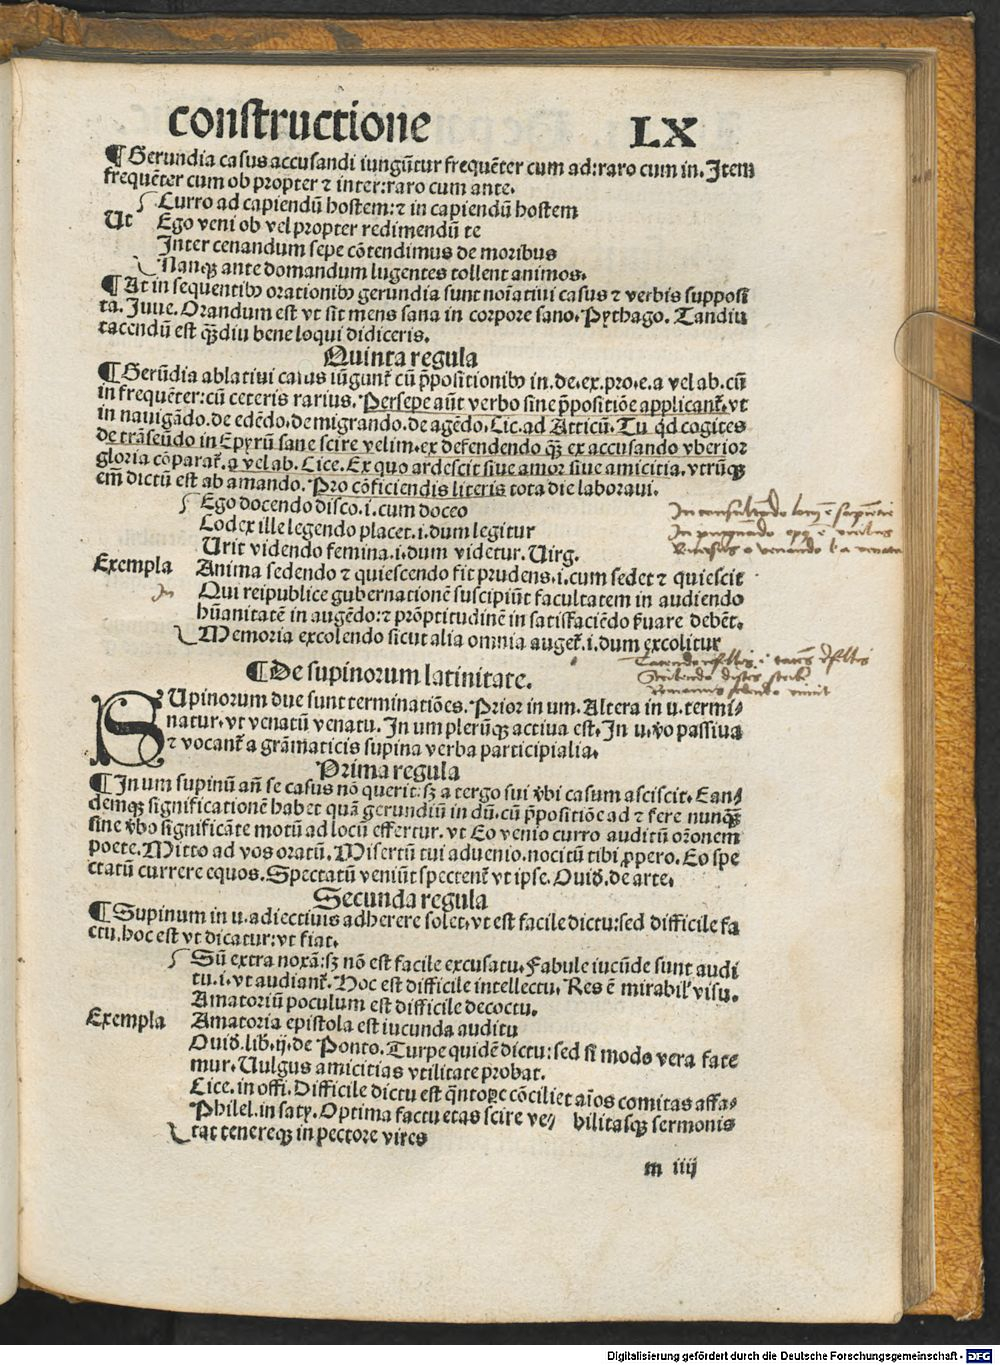 constructione LX
¶ Gerundia casus accusandi iungūtur frequēter cum ad:raro cum in. Item
frequēter cum ob propter ⁊ inter:raro cum ante.
Curro ad capiendū hostem:⁊ in capiendū hostem
Ut Ego veni ob vel propter redimendū te
Inter cenandum sepe cōtendimus de moribus
Nanqꝫ ante domandum lugentes tollent animos.
¶ At in sequentibꝰ orationibꝰ gerundia sunt noīatiui casus ⁊ verbis supposi
ta. Juue. Orandum est vt sit mens sana in corpore sano. Pythago. Tandiu
tacendū est qꝫdiu bene loqui didiceris.
Quinta regula
¶ Gerūdia ablatiui casus iūgunt̄ cū p̄positionibꝰ in.de.ex.pro.e.a vel ab.cū
in frequēter:cū ceteris rarius. Persepe aūt verbo sine p̄positiōe applicant̄.vt
in nauigādo.de edēdo.de migrando.de agēdo. Cic.ad Atticū. Tu qd cogites
de trāseūdo in Epyrū sane scire velim.ex defendendo qꝫ ex accusando vberior
gloria cōparat̄.a vel ab. Cice. Ex quo ardescit siue amor siue amicitia.vtrūqꝫ
em̄ dictū est ab amando. Pro cōficiendis literis tota die laboraui.
Ego docendo disco.i.cum doceo
Codex ille legendo placet.i.dum legitur
Urit videndo femina.i.dum videtur. Uirg.
Exempla Anima sedendo ⁊ quiescendo fit prudens.i.cum sedet ⁊ quiescit
In Qui reipublice gubernationē suscipiūt facultatem in audiendo
hūanitatē in augēdo:⁊ prōptitudinē in satisfaciēdo ẜuare debēt.
Memoria excolendo sicut alia omnia auget̄.i.dum excolitur
¶ De supinorum latinitate.
SUpinorum due sunt terminatiōes. Prior in um. Altera in u.termi⸗
natur.vt venatū venatu. In um plerūqꝫ actiua est. In u.v̄o passiua
⁊ vocant̄ a grāmaticis supina verba participialia.
Prima regula
¶ In um supinū an̄ se casus nō querit:sꝫ a tergo sui v̄bi casum asciscit. Ean⸗
demqꝫ significationē habet quā gerundiū in dū.cū p̄positiōe ad ⁊ fere nunqꝫ
sine v̄bo significāte motū ad locū effertur.vt Eo venio curro auditū oz̄onem
poete. Mitto ad vos oratū. Misertū tui aduenio.nocitū tibi ꝓpero. Eo spe
ctatū currere equos. Spectatū veniūt spectent̄ vt ipse. Ouid.de arte.
Secunda regula
¶ Supinum in u.adiectiuis adherere solet.vt est facile dictu:sed difficile fa
ctu.hoc est vt dicatur:vt fiat.
Sū extra noxā:sꝫ nō est facile excusatu. Fabule iucūde sunt audi
tu.i.vt audiant̄. Hoc est difficile intellectu. Res ē mirabil' visu.
Amatoriū poculum est difficile decoctu.
Exempla Amatoria epistola est iucunda auditu
Ouid.lib.ij.de Ponto. Turpe quidē dictu:sed si modo vera fate
mur. Uulgus amicitias vtilitate probat.
Cice.in offi. Difficile dictu est qn̄toꝑe cōciliet aīos comitas affa⸗
Philel.in saty. Optima factu etas scire ve⸗ bilitasqꝫ sermonis
tat tenereqꝫ in pectore vires
m iiij
Digitalisierung gefördert durch die Deutsche Forschungsgemeinschaft - DFG